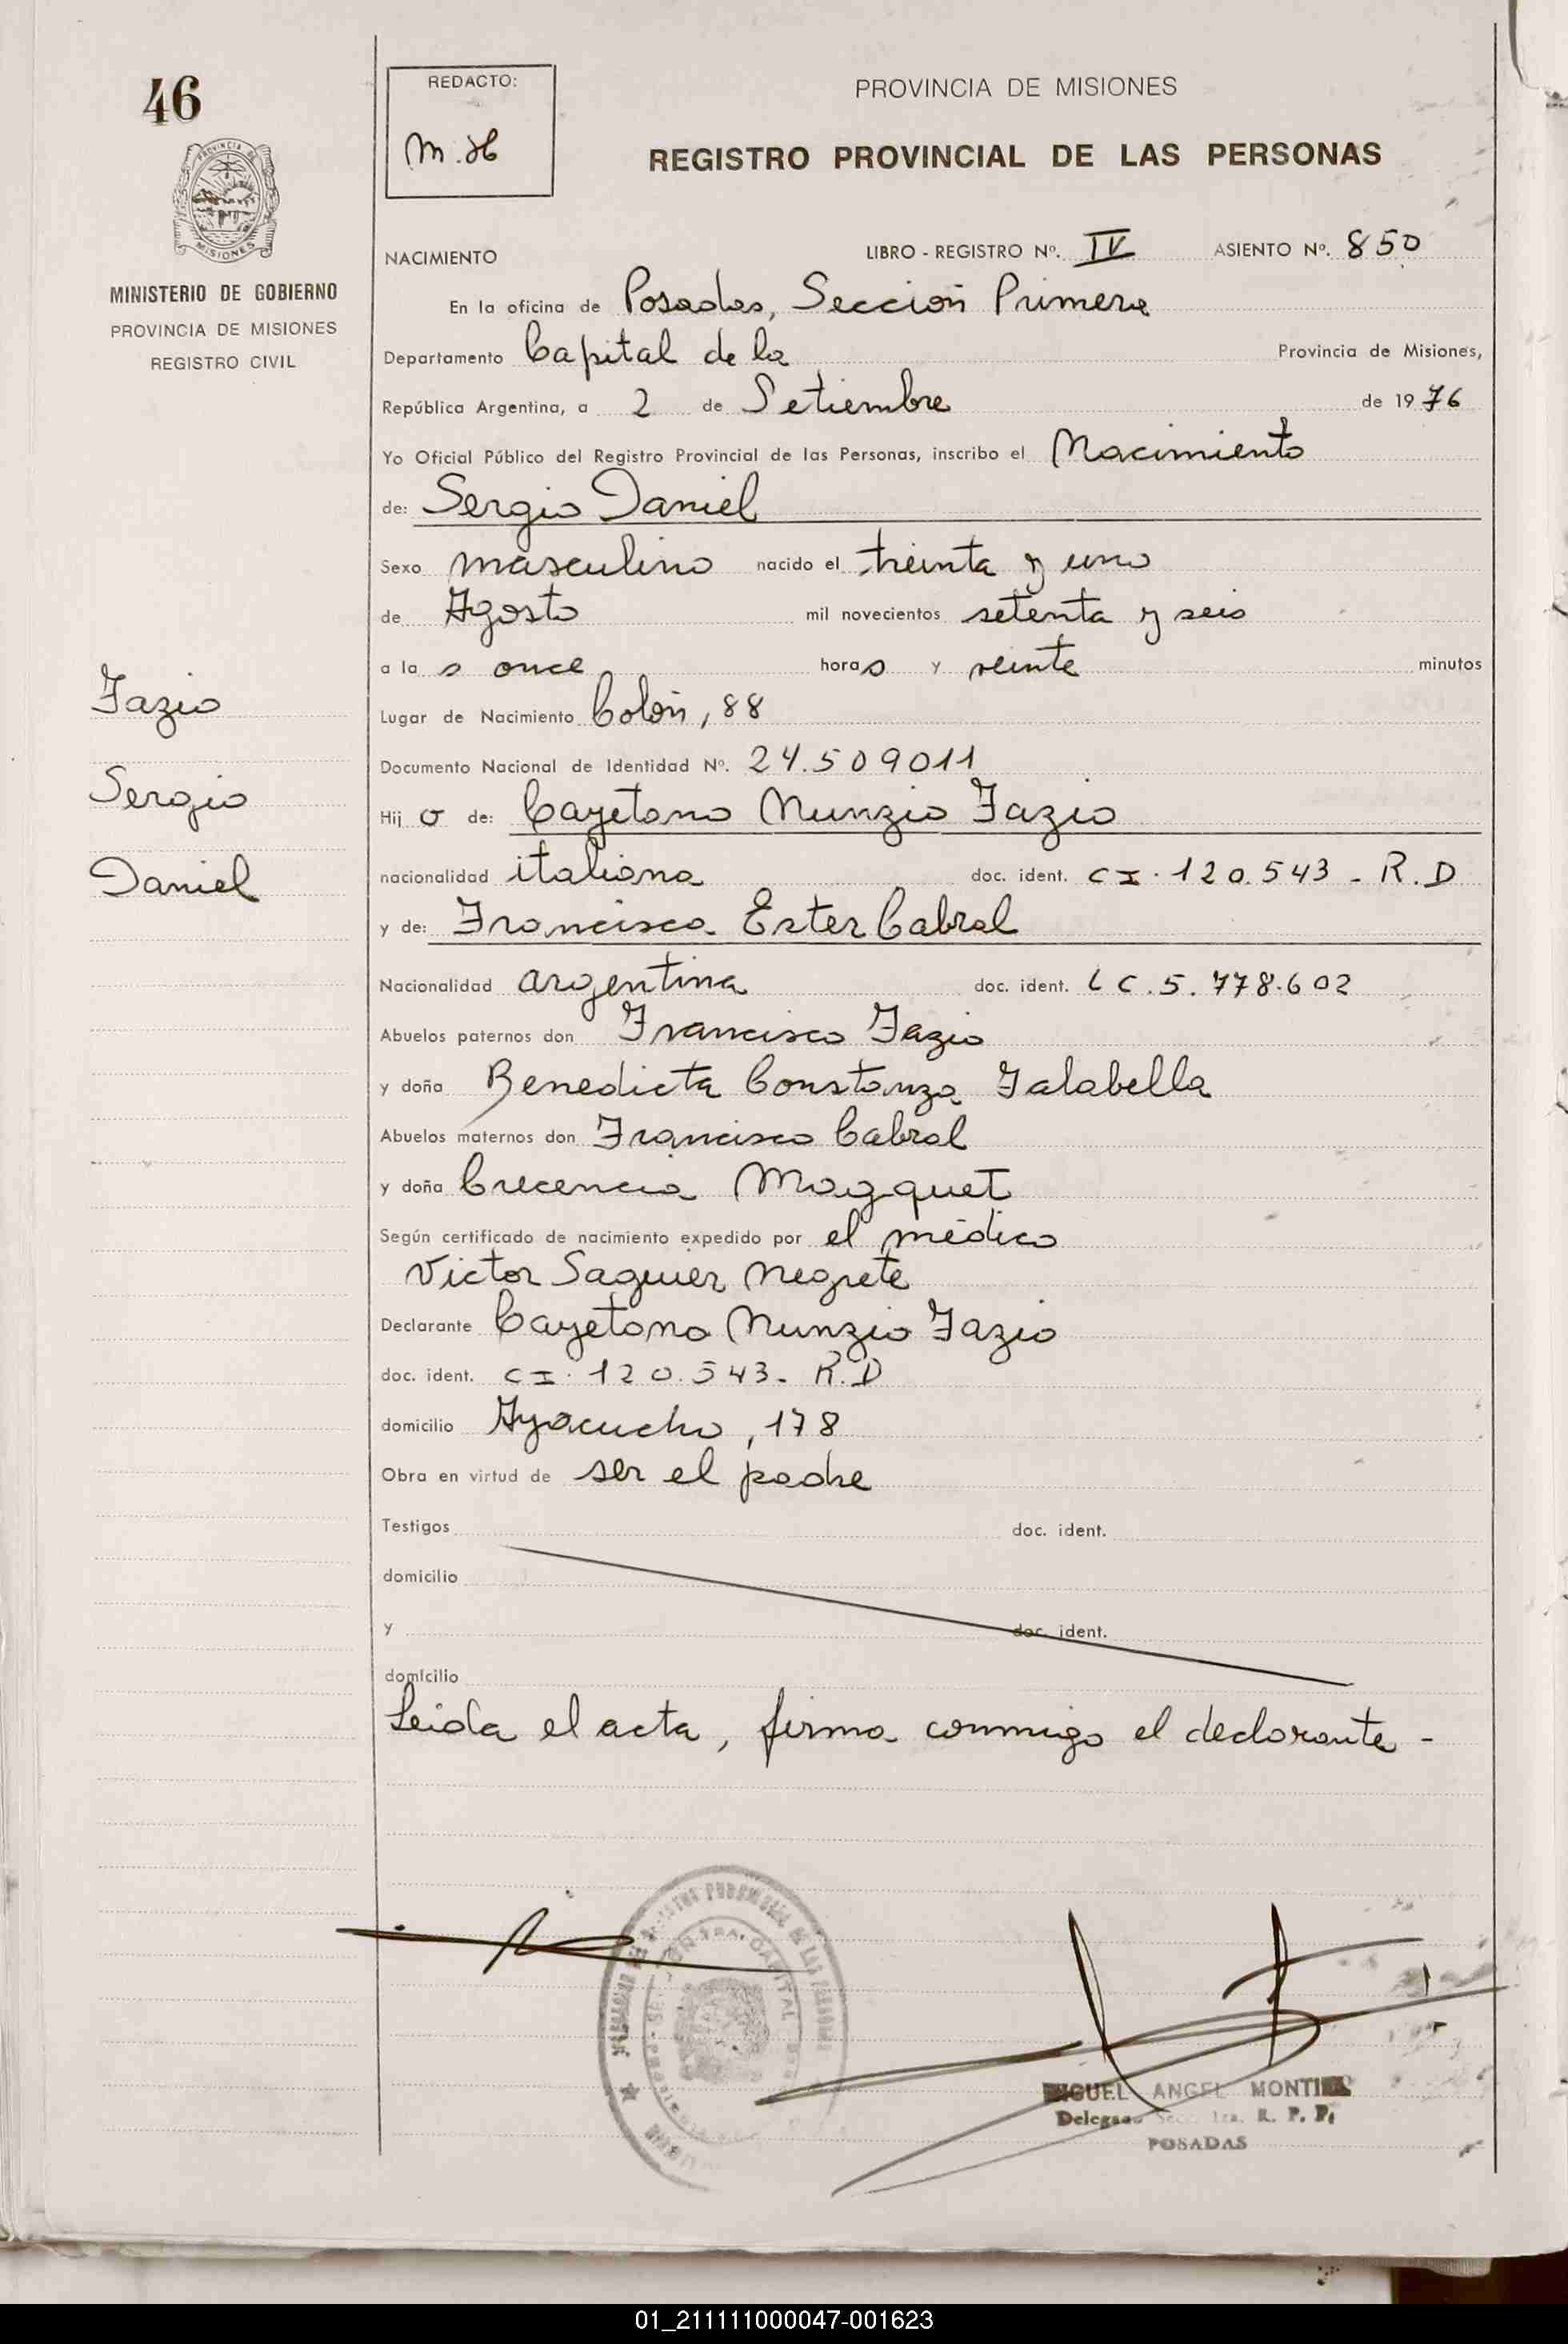 46
REDACTO:
M.H
PROVINCIA DE MISIONES
REGISTRO PROVINCIAL DE LAS PERSONAS
PROVINCIA DE
MISIONES
MINISTERIO DE GOBIERNO
PROVINCIA DE MISIONES
REGISTRO CIVIL
NACIMIENTO LIBRO - REGISTRO Nº. IV ASIENTO Nº. 850
En la oficina de Posadas, Sección Primera
Departamento Capital de la Provincia de Misiones,
República Argentina, a 2 de Setiembre de 1976
Yo Oficial Público del Registro Provincial de las Personas, inscribo el Nacimiento
de: Sergio Daniel
Sexo masculino nacido el treinta y uno
de Agosto mil novecientos setenta y seis
a la s once horas y veinte minutos
Fazio
Sergio
Daniel
Lugar de Nacimiento Colón, 88
Documento Nacional de Identidad Nº. 24.509011
Hij o de: Cayetano Nunzio Fazio
nacionalidad italiana doc. ident. CI. 120.543 - R.D
y de: Francisca Ester Cabral
Nacionalidad argentina doc. ident. LC. 5.778.602
Abuelos paternos don Francisco Fazio
y doña Benedicta Constanza Falabella
Abuelos maternos don Francisco Cabral
y doña Crecencia Mazquet
Según certificado de nacimiento expedido por el médico
Victor Saguier Negrete
Declarante Cayetano Nunzio Fazio
doc. ident. CI. 120.543 - R.D
domicilio Ayacucho, 178
Obra en virtud de ser el padre
Testigos doc. ident.
domicilio
y doc. ident.
domicilio
Leída el acta, firma conmigo el declarante -
MIGUEL ANGEL MONTIEL
Delegado Secc. 1ra. R. P. P.
POSADAS
01_211111000047-001623